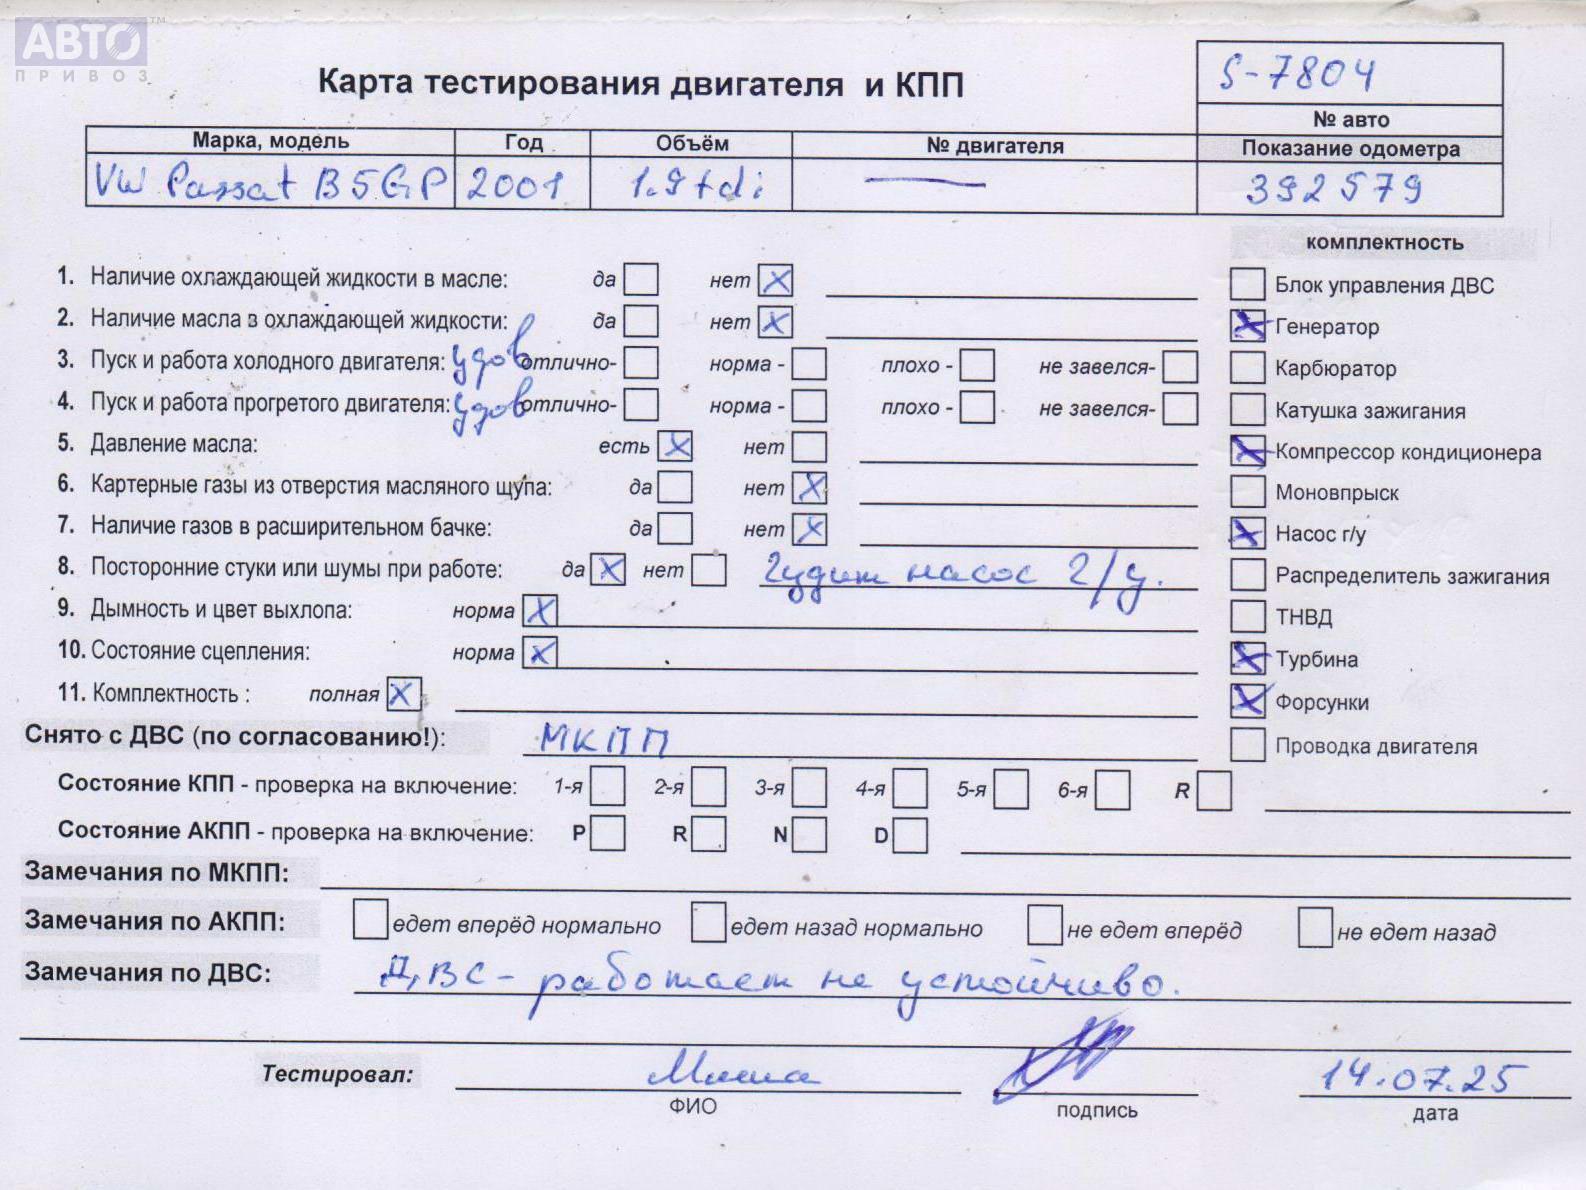 АВТО ™
ПРИВОЗ
Карта тестирования двигателя и КПП
S-7804
№ авто
Марка, модель Год Объём № двигателя Показание одометра
VW Passat B5GP 2001 1.9 tdi — 392579
комплектность
1. Наличие охлаждающей жидкости в масле: да нет X
Блок управления ДВС
2. Наличие масла в охлаждающей жидкости: да нет X
X Генератор
3. Пуск и работа холодного двигателя: удов отлично- норма - плохо - не завелся-
Карбюратор
4. Пуск и работа прогретого двигателя: удов отлично- норма - плохо - не завелся-
Катушка зажигания
5. Давление масла: есть X нет
X Компрессор кондиционера
6. Картерные газы из отверстия масляного щупа: да нет X
Моновпрыск
7. Наличие газов в расширительном бачке: да нет X
X Насос г/у
8. Посторонние стуки или шумы при работе: да X нет Гудит насос г/у.
Распределитель зажигания
9. Дымность и цвет выхлопа: норма X
ТНВД
10. Состояние сцепления: норма X
X Турбина
11. Комплектность : полная X
X Форсунки
Снято с ДВС (по согласованию!): МКПП
Проводка двигателя
Состояние КПП - проверка на включение: 1-я 2-я 3-я 4-я 5-я 6-я R
Состояние АКПП - проверка на включение: P R N D
Замечания по МКПП:
Замечания по АКПП: едет вперёд нормально едет назад нормально не едет вперёд не едет назад
Замечания по ДВС: ДВС - работает не устойчиво.
Тестировал: Миша 14.07.25
ФИО подпись дата